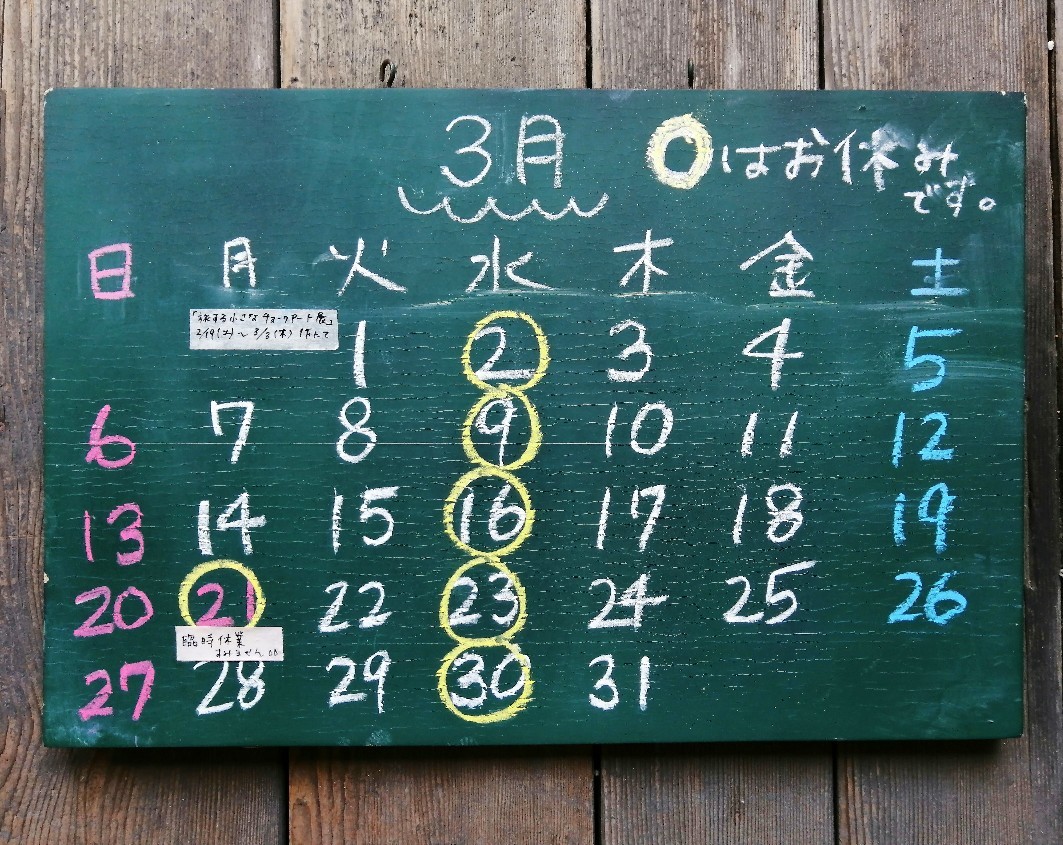 3月
○はお休み
です。
日 月 火 水 木 金 土
「旅する小さなチョークアート展」
2/19(土)～3/3(木)
1 2 3 4 5
6 7 8 9 10 11 12
13 14 15 16 17 18 19
20 21 22 23 24 25 26
臨時休業
すみません
27 28 29 30 31